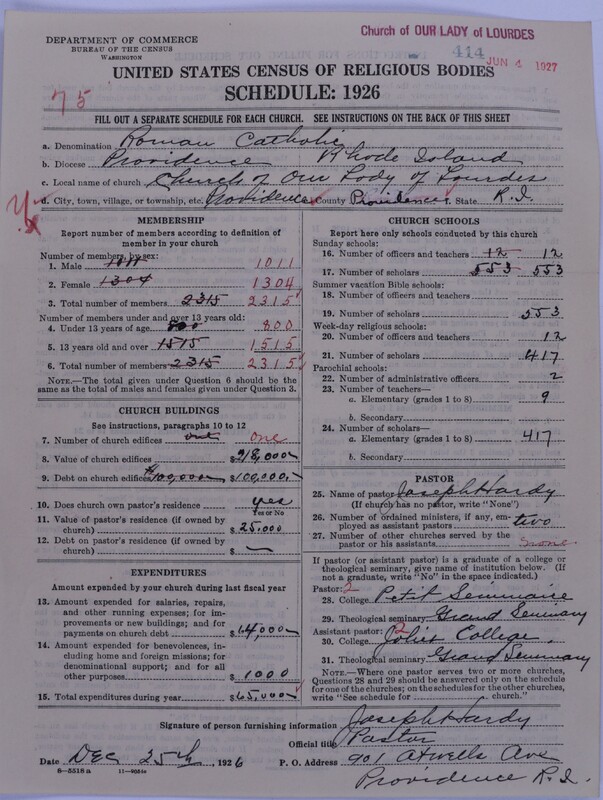 Church of OUR LADY of LOURDES
DEPARTMENT OF COMMERCE
BUREAU OF THE CENSUS
WASHINGTON
414
JUN 4 1927
UNITED STATES CENSUS OF RELIGIOUS BODIES
SCHEDULE: 1926
75
FILL OUT A SEPARATE SCHEDULE FOR EACH CHURCH. SEE INSTRUCTIONS ON THE BACK OF THIS SHEET
a. Denomination Roman Catholic
b. Diocese Providence Rhode Island
c. Local name of church Church of Our Lady of Lourdes
d. City, town, village, or township, etc. Providence County Providence State R.I.
MEMBERSHIP
Report number of members according to definition of
member in your church
Number of members by sex:
1. Male 1011 1011
2. Female 1304 1304
3. Total number of members 2315 2315
Number of members under and over 13 years old:
4. Under 13 years of age 800 800
5. 13 years old and over 1515 1515
6. Total number of members 2315 2315
NOTE.—The total given under Question 6 should be the
same as the total of males and females given under Question 3.
CHURCH BUILDINGS
See instructions, paragraphs 10 to 12
7. Number of church edifices one one
8. Value of church edifices $218,000
9. Debt on church edifices $100,000 $100,000
10. Does church own pastor's residence? yes
Yes or No
11. Value of pastor's residence (if owned by
church) $25,000
12. Debt on pastor's residence (if owned by
church) $ —
EXPENDITURES
Amount expended by your church during last fiscal year
13. Amount expended for salaries, repairs,
and other running expenses; for im-
provements or new buildings; and for
payments on church debt $64,000
14. Amount expended for benevolences,
including home and foreign missions; for
denominational support; and for all
other purposes $1000
15. Total expenditures during year $65,000
CHURCH SCHOOLS
Report here only schools conducted by this church
Sunday schools:
16. Number of officers and teachers 12 12
17. Number of scholars 553 553
Summer vacation Bible schools:
18. Number of officers and teachers
19. Number of scholars 553
Week-day religious schools:
20. Number of officers and teachers 12
21. Number of scholars 417
Parochial schools:
22. Number of administrative officers 2
23. Number of teachers—
a. Elementary (grades 1 to 8) 9
b. Secondary
24. Number of scholars—
a. Elementary (grades 1 to 8) 417
b. Secondary
PASTOR
25. Name of pastor Joseph Hardy
(If church has no pastor, write "None")
26. Number of ordained ministers, if any, em-
ployed as assistant pastors two
27. Number of other churches served by the
pastor or his assistants None
If pastor (or assistant pastor) is a graduate of a college or
theological seminary, give name of institution below. (If
not a graduate, write "No" in the space indicated.)
Pastor: 2
28. College Petit Seminaire
29. Theological seminary Grand Seminary
Assistant pastor: 2
30. College Joliet College
31. Theological seminary Grand Seminary
NOTE.—Where one pastor serves two or more churches,
Questions 28 and 29 should be answered only on the schedule
for one of the churches; on the schedules for the other churches,
write "See schedule for church."
Signature of person furnishing information Joseph Hardy
Official title Pastor
Date Dec 25th, 1926 P. O. Address 901 Atwells Ave
8—5318a 11—9034a Providence R.I.